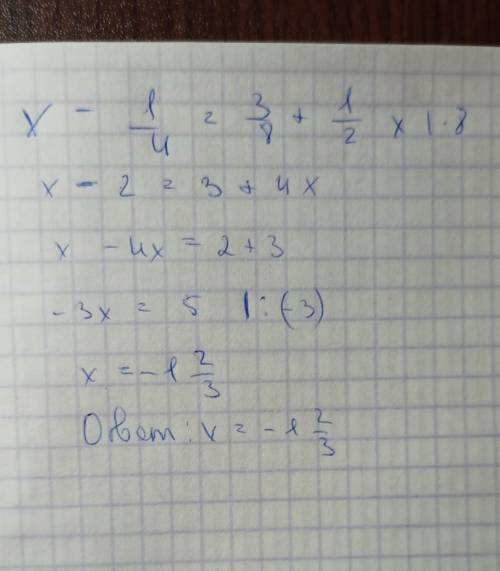 x - 1/4 = 3/8 + 1/2 x |·8
x - 2 = 3 + 4x
x - 4x = 2 + 3
-3x = 5 |:(-3)
x = -1 2/3
Ответ: x = -1 2/3